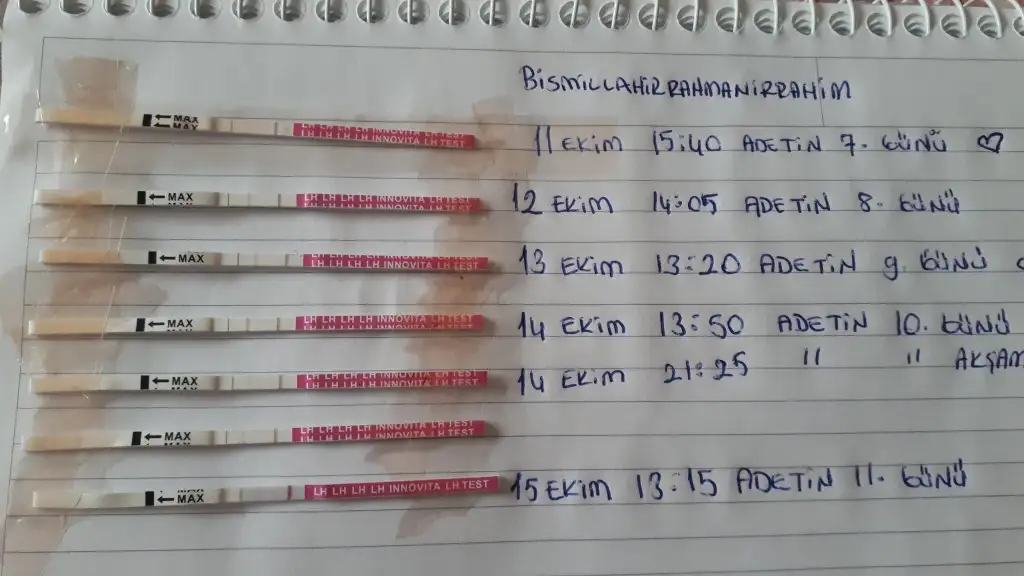 BİSMİLLAHİRRAHMANİRRAHİM
MAX
LH LH LH LH INNOVITA LH TEST
11 EKİM 15:40 ADETİN 7. GÜNÜ ♡
MAX
LH LH LH LH INNOVITA LH TEST
12 EKİM 14:05 ADETİN 8. GÜNÜ
MAX
LH LH LH LH INNOVITA LH TEST
13 EKİM 13:20 ADETİN 9. GÜNÜ
MAX
LH LH LH LH INNOVITA LH TEST
14 EKİM 13:50 ADETİN 10. GÜNÜ
MAX
LH LH LH LH INNOVITA LH TEST
14 EKİM 21:25 " " AKŞAM
MAX
LH LH LH LH INNOVITA LH TEST
MAX
LH LH LH LH INNOVITA LH TEST
15 EKİM 13:15 ADETİN 11. GÜNÜ